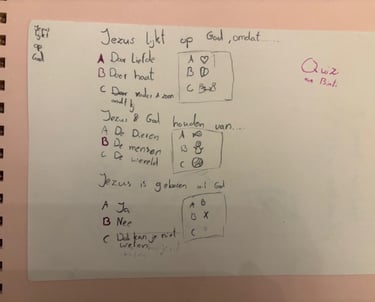 Jezus
lijkt
op
God
Jezus lijkt op God, omdat....
A Door Liefde
B Door haat
C Door vader & zoon
A
B
C
Quiz
Jezus & God houden van....
A De Dieren
B De mensen
C De wereld
A
B
C
Jezus is geboren uit God
A Ja
B Nee
C Dat kan je niet
weten
A B
B X
C